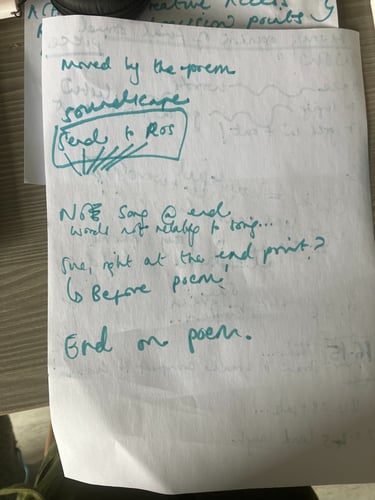 Creative Access
points
Moved by the poem
soundscape
Send to Ros
NOTE song @ end
words not relating to song...
right at the end point?
↳ Before poem!
End on poem.